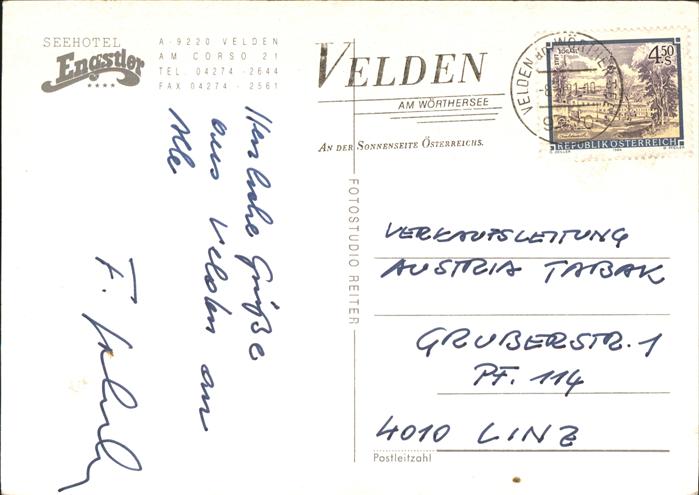 SEEHOTEL
Engstler
A-9220 VELDEN
AM CORSO 21
TEL. 04274-2644
FAX 04274-2561
VELDEN
AM WÖRTHERSEE
AN DER SONNENSEITE ÖSTERREICHS.
VELDEN am WÖRTHERSEE
4.50
S
REPUBLIK ÖSTERREICH
Herzliche Grüße
aus Velden an
Alle
F.
FOTOSTUDIO REITER
VERKAUFSLEITUNG
AUSTRIA TABAK
GRUBERSTR. 1
PF. 114
4010 LINZ
Postleitzahl